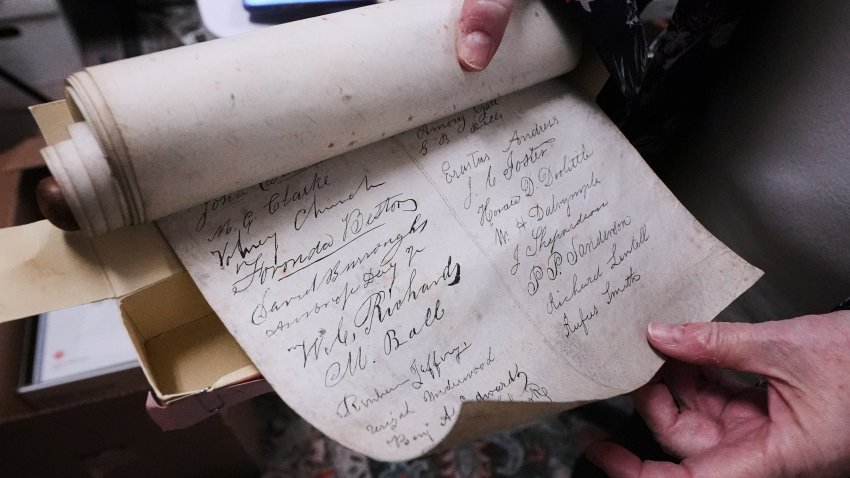 M. G. Clarke
Volney Church
Foronda Bestor
David Burroughs
Ambrose Day
Wm. C. Richards
M. Ball
Reuben Jeffrey
Underwood
Benj. A. Edwards
Amory Gale
S. B.
Erastus Andrews
J. C. Foster
Horace D. Doolittle
W. H. Dalrymple
J. Shepardson
P. P. Sanderson
Richard Lentell
Rufus Smith